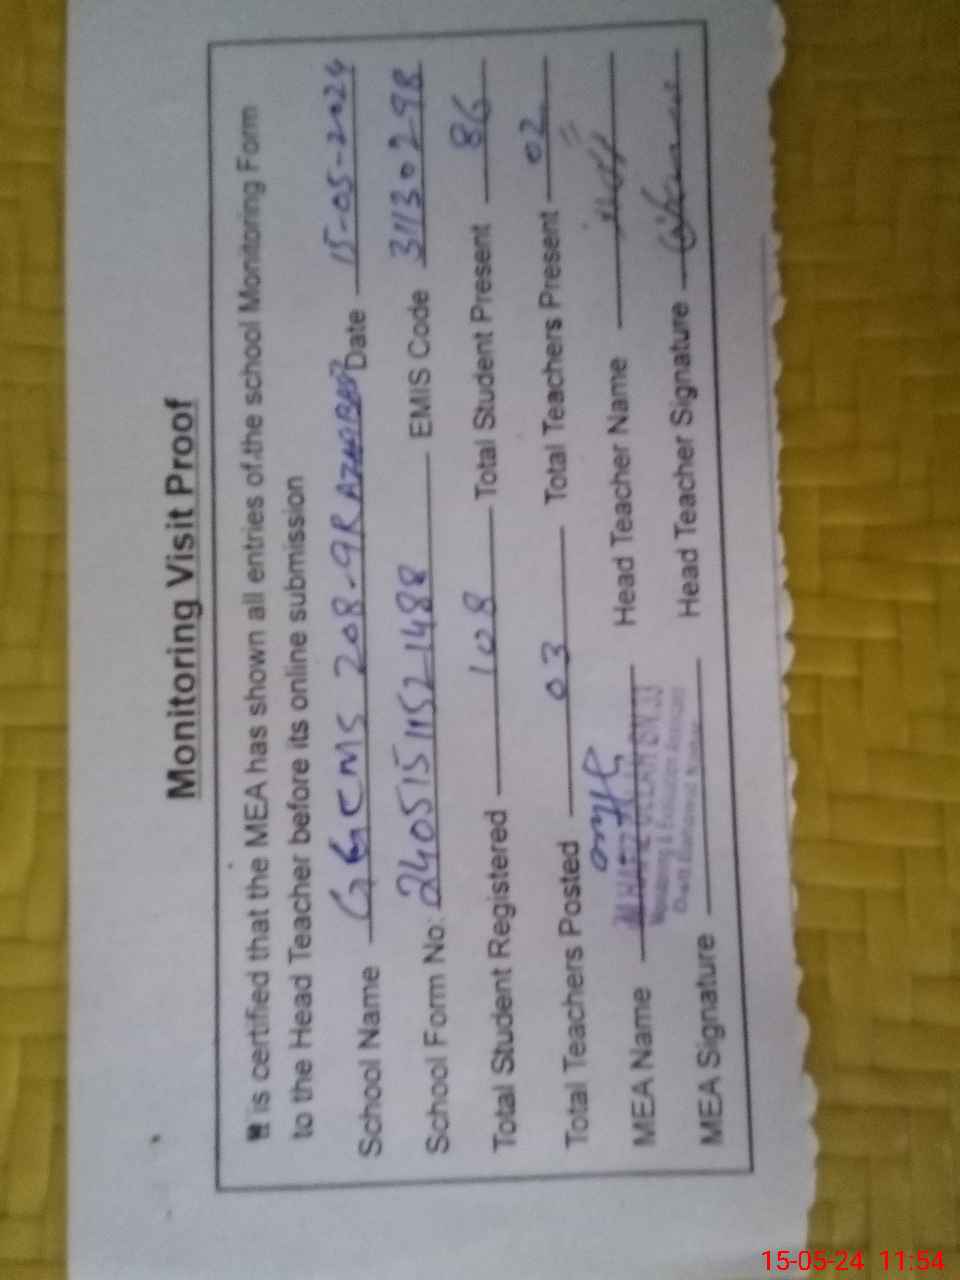 Monitoring Visit Proof
It is certified that the MEA has shown all entries of the school Monitoring Form
to the Head Teacher before its online submission
School Name GGCMS 208-9R Date 15-05-2024
School Form No: 24051511521488 EMIS Code 31130298
Total Student Registered 108 Total Student Present 86
Total Teachers Posted 03 Total Teachers Present 02
MEA Name Head Teacher Name
MEA Signature Head Teacher Signature
15-05-24 11:54